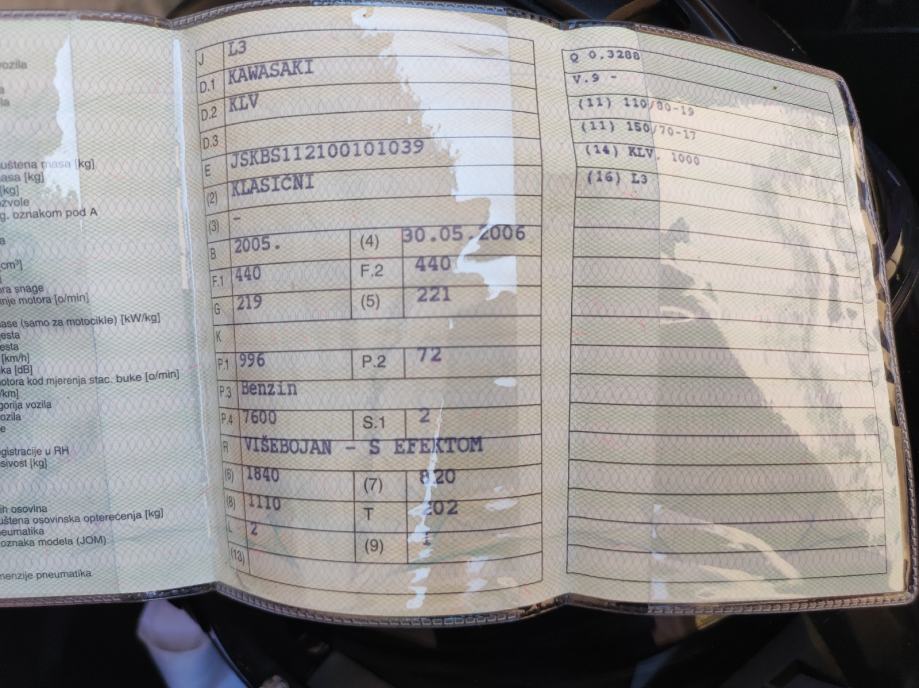 vozila
a
la
uštena masa [kg]
masa [kg]
[kg]
ozvole
g. oznakom pod A
a
[cm³]
ora snage
nje motora [o/min]
ase (samo za motocikle) [kW/kg]
esta
esta
[km/h]
ka [dB]
notora kod mjerenja stac. buke [o/min]
/km]
gorija vozila
ozila
e
egistracije u RH
sivost [kg]
ih osovina
uštena osovinska opterećenja [kg]
neumatika
oznaka modela (JOM)
menzije pneumatika
J L3
D.1 KAWASAKI
D.2 KLV
D.3
E JSKBS112100101039
(2) KLASIČNI
(3) -
B 2005. (4) 30.05.2006
F.1 440 F.2 440
G 219 (5) 221
K
P.1 996 P.2 72
P.3 Benzin
P.4 7600 S.1 2
R VIŠEBOJAN - S EFEKTOM
(6) 1840 (7) 820
(8) 1110 T 202
L 2 (9) 1
(13)
Q 0,3288
V.9 -
(11) 110/80-19
(11) 150/70-17
(14) KLV 1000
(16) L3